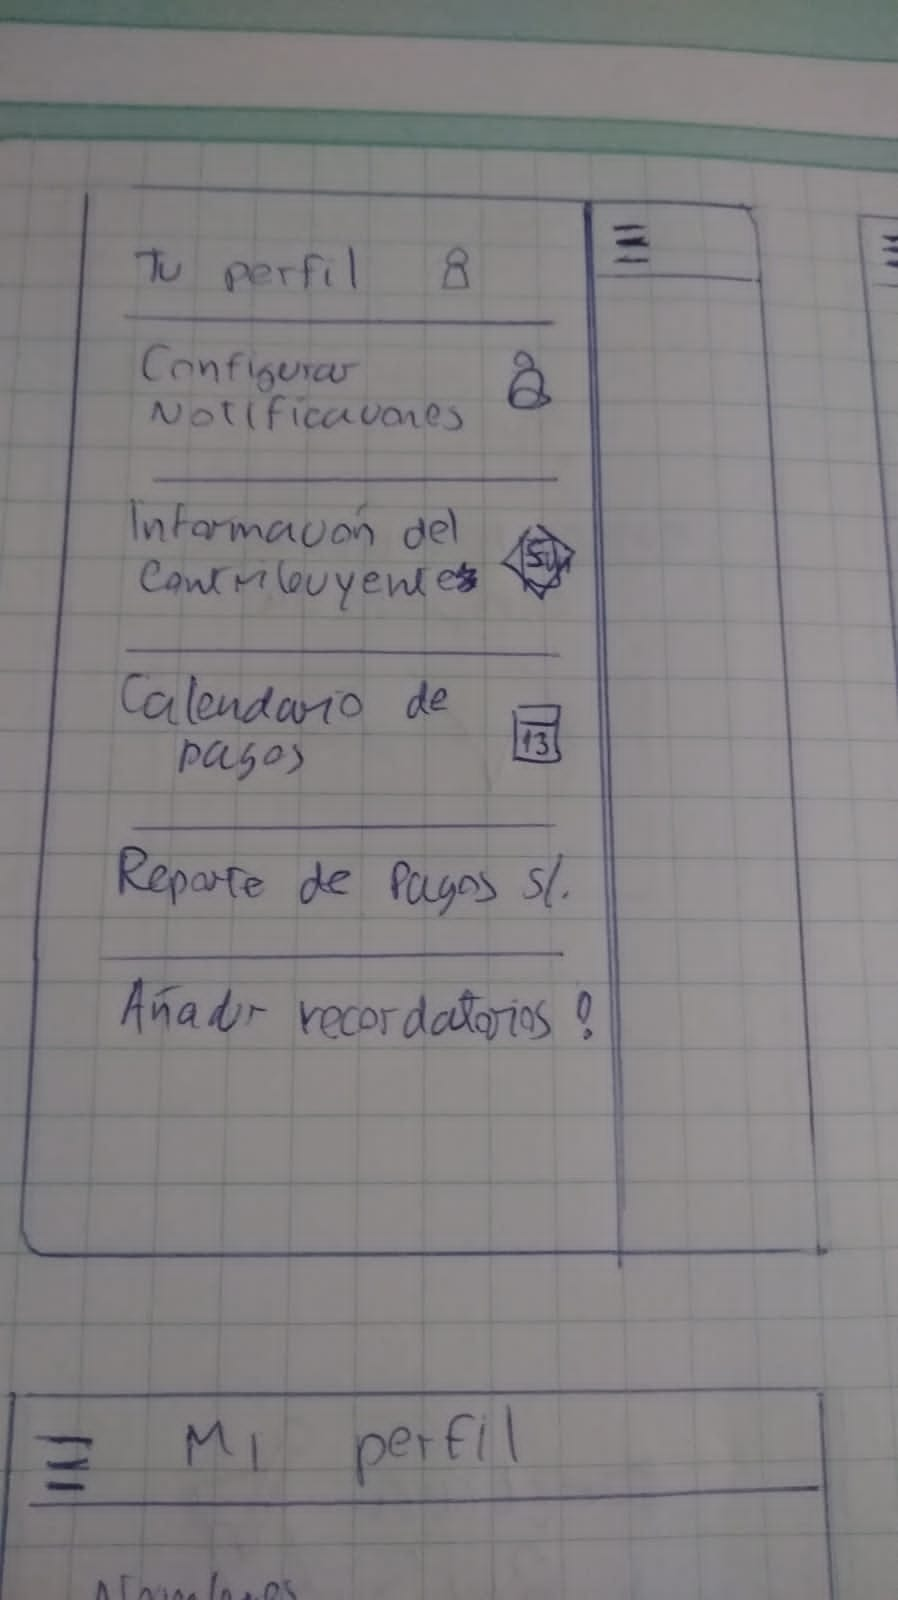 Tu perfil
Configurar
Notificaciones
Información del
Contribuyente
Calendario de
pagos
13
Reporte de Pagos S/.
Añadir recordatorios !
Mi perfil